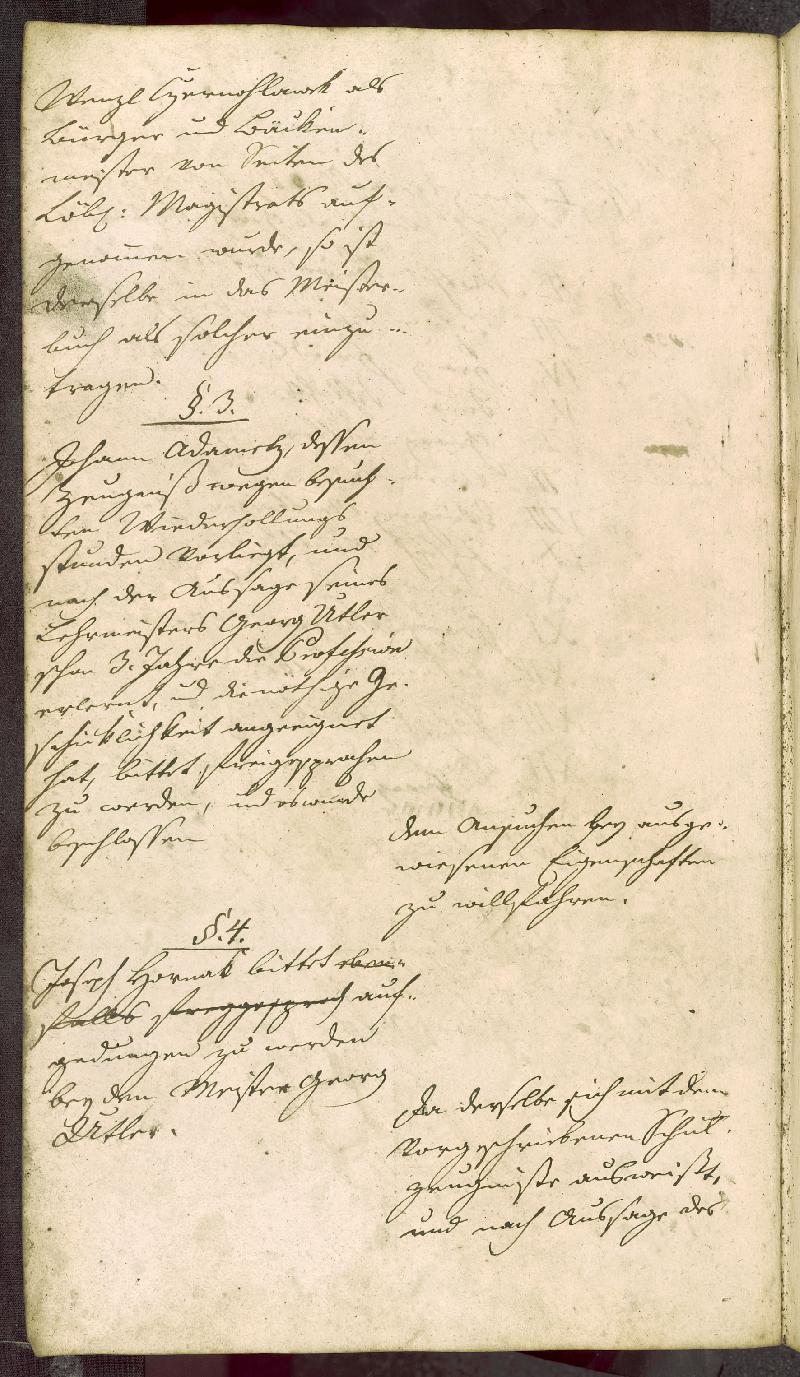 Wenzl Czernohlawek als
Bürger und Bäcken-
meister von Seiten des
Löbl: Magistrats auf-
genommen wurde, so ist
derselbe in das Meister-
buch als solcher einzu-
tragen.
§. 3.
Johann Adametz, dessen
Zeugniß wegen besuch-
ten Wiederhollungs
stunden vorliegt, und
nach der Aussage seines
Lehrmeisters Georg Utler
schon 3. Jahre die Profession
erlernt, und die nöthige Ge-
schicklichkeit angeeignet
hat, bittet freigesprochen
zu werden, und es wurde
beschlossen
dem Ansuchen bey ausge-
wiesenen Eigenschaften
zu willfahren.
§. 4.
Joseph Hornak bittet eben-
falls freygesproch auf-
gedungen zu werden
bey den Meister Georg
Utler.
Da derselbe sich mit dem
vorgeschriebenen Schul-
zeugniße ausweißt,
und nach Aussage des